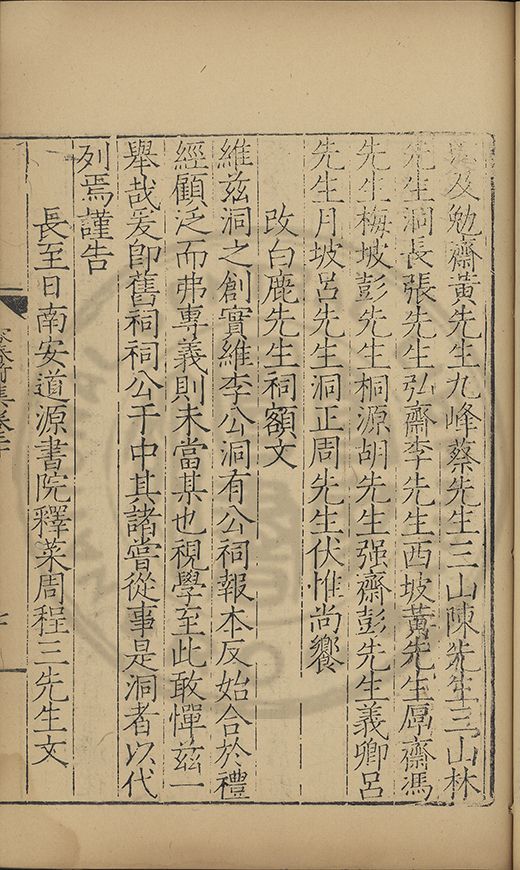 及勉齋黃先生九峰蔡先生三山陳先生三山林
先生洞長張先生弘齋李先生西坡黃先生厚齋馮
先生梅坡彭先生桐源胡先生强齋彭先生義卿呂
先生月坡呂先生洞正周先生伏惟尚饗
改白鹿先生祠額文
維茲洞之創實維李公洞有公祠報本反始合於禮
經顧泛而弗專義則未當某也視學至此敢憚茲一
舉哉爰卽舊祠祠公于中其諸嘗從事是洞者以代
列焉謹告
長至日南安道源書院釋菜周程三先生文